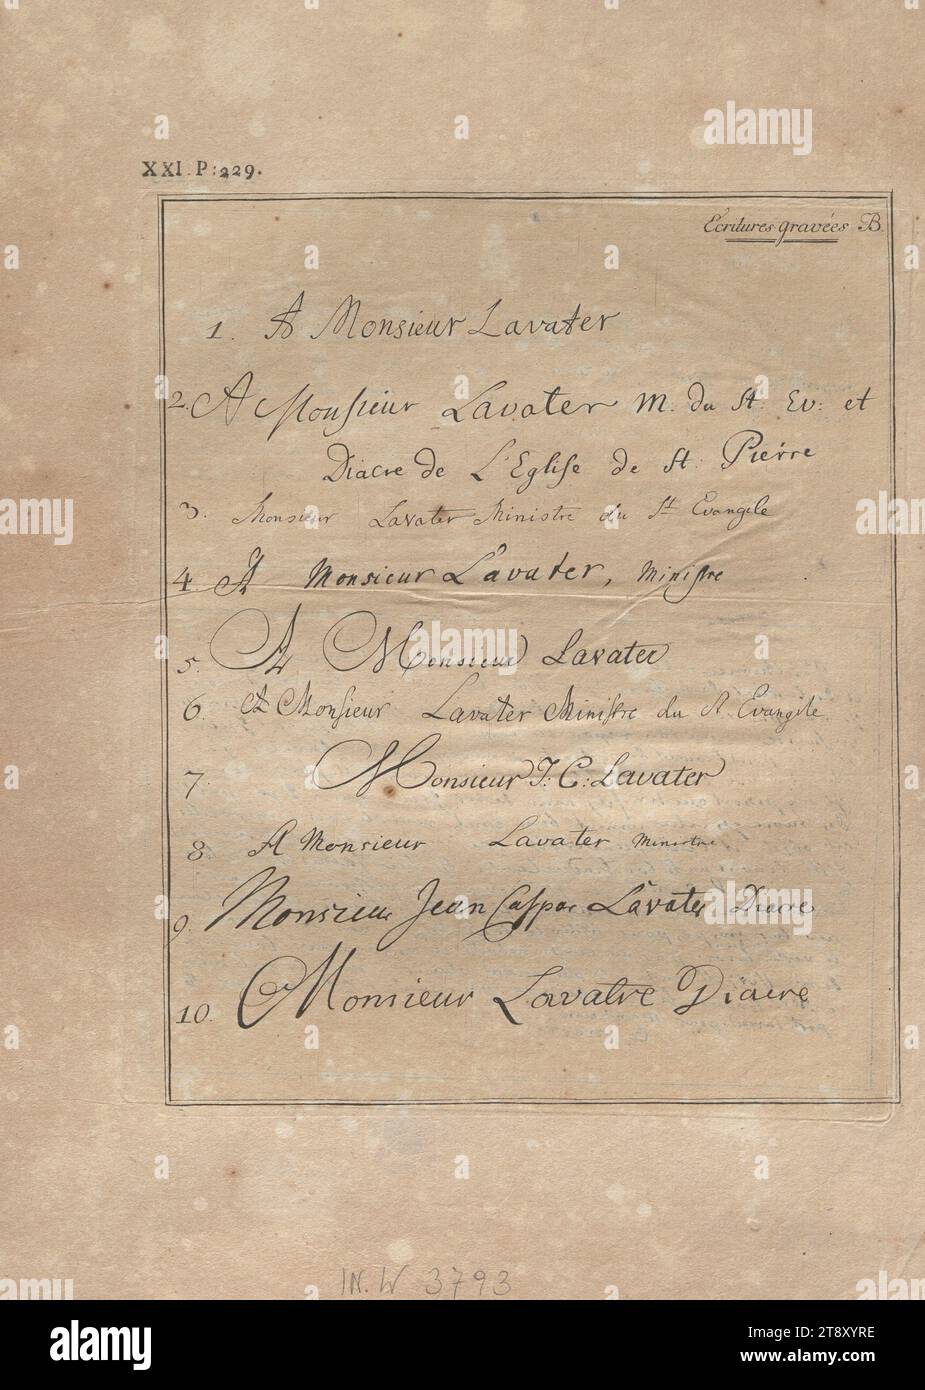 XXI. P:229.
Ecritures gravées B.
1. A Monsieur Lavater
2. A Monsieur Lavater M. du St. Ev: et
Diacre de L'Eglise de St. Pierre
3. Monsieur Lavater Ministre du St Evangile
4. A Monsieur Lavater, Ministre
5. A Monsieur Lavater
6. A Monsieur Lavater Ministre du St. Evangile
7. Monsieur J: C: Lavater
8. A Monsieur Lavater Ministre
9. Monsieur Jean Caspar Lavater Diacre
10. Monsieur Lavatre Diacre
IN. W 3793
alamy
alamy
Image ID: 2T8XYRE
www.alamy.com